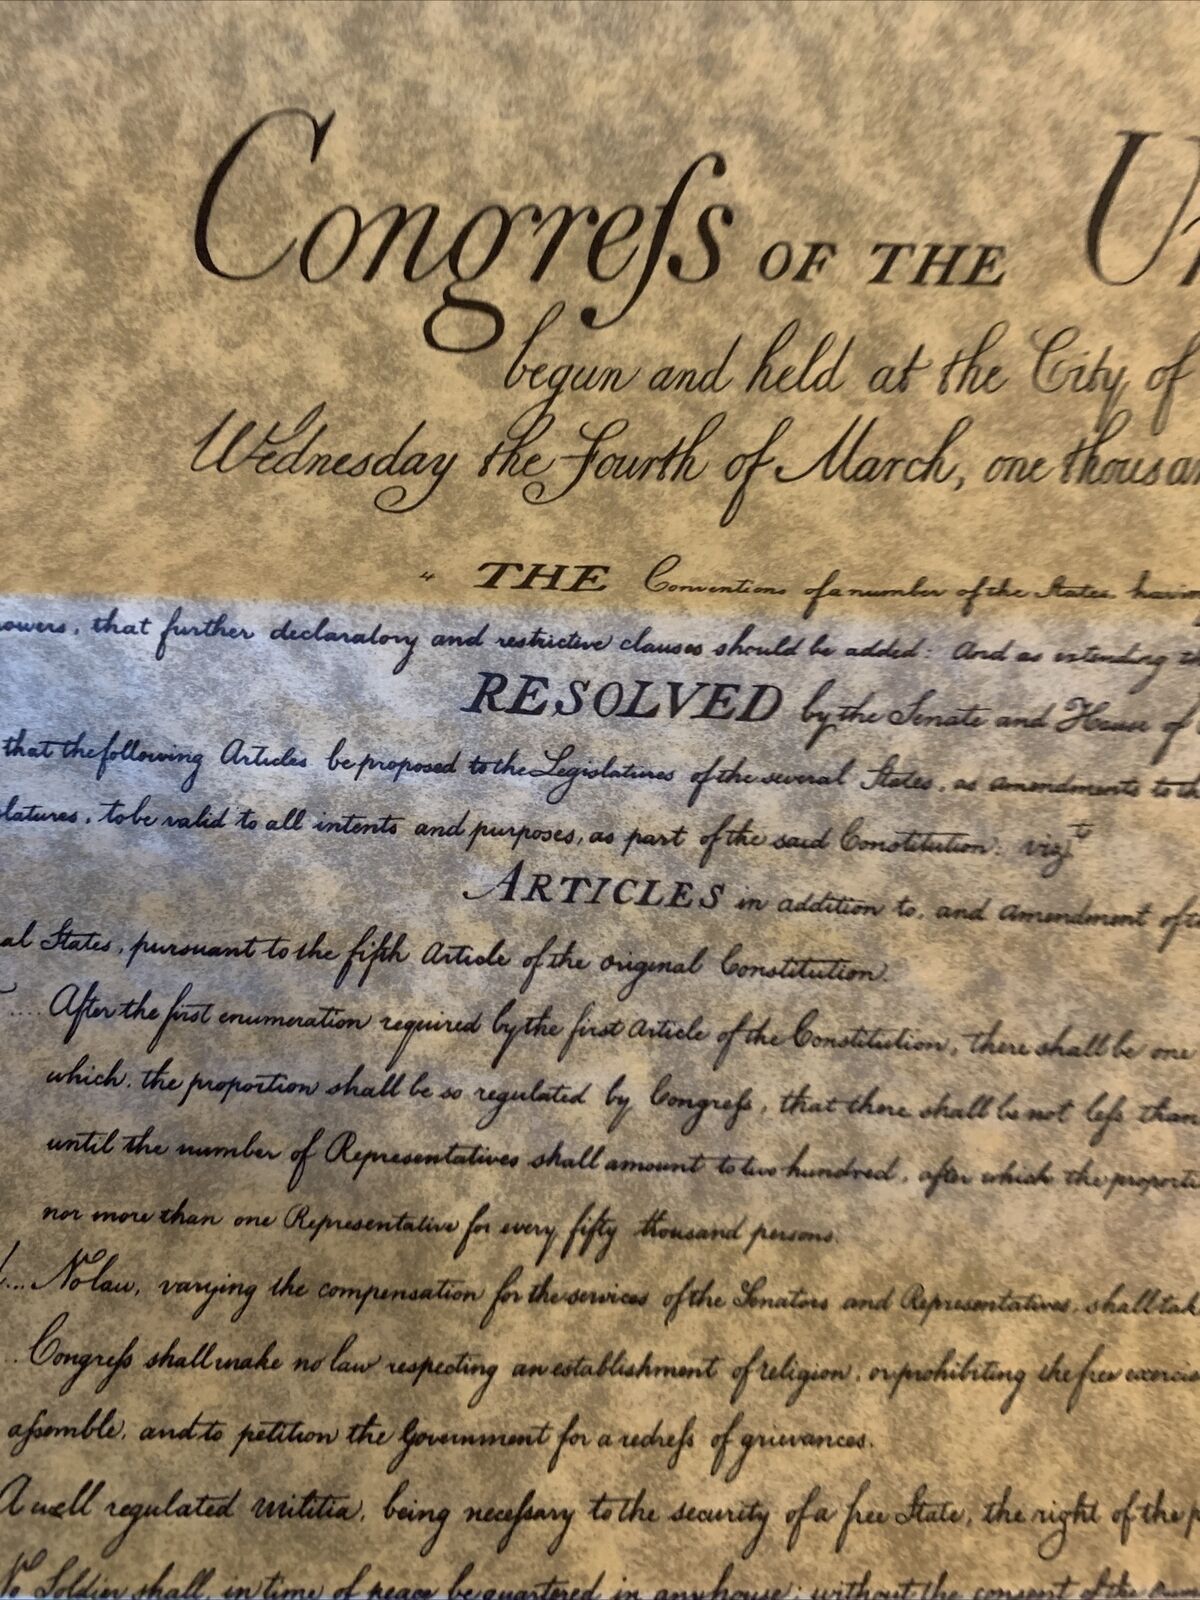 Congreſs OF THE
begun and held at the City of
Wednesday the Fourth of March, one
" THE Conventions of a number of the States
that further declaratory and restrictive clauses should be added: And as extending
RESOLVED by the Senate and House of
that the following Articles be proposed to the Legislatures of the several States, as amendments to
to be valid to all intents and purposes, as part of the said Constitution. vizt
ARTICLES in addition to, and amendment of
States, pursuant to the fifth Article of the original Constitution.
.... After the first enumeration required by the first Article of the Constitution, there shall be one
which, the proportion shall be so regulated by Congreſs, that there shall be not leſs than
until the number of Representatives shall amount to two hundred, after which the
nor more than one Representative for every fifty thousand persons.
... No law, varying the compensation for the services of the Senators and Representatives, shall
. Congreſs shall make no law respecting an establishment of religion, or prohibiting the free
aſsemble, and to petition the Government for a redreſs of grievances.
A well regulated militia, being neceſsary to the security of a free State, the right of the
No Soldier shall, in time of peace be quartered in any house, without the consent of the